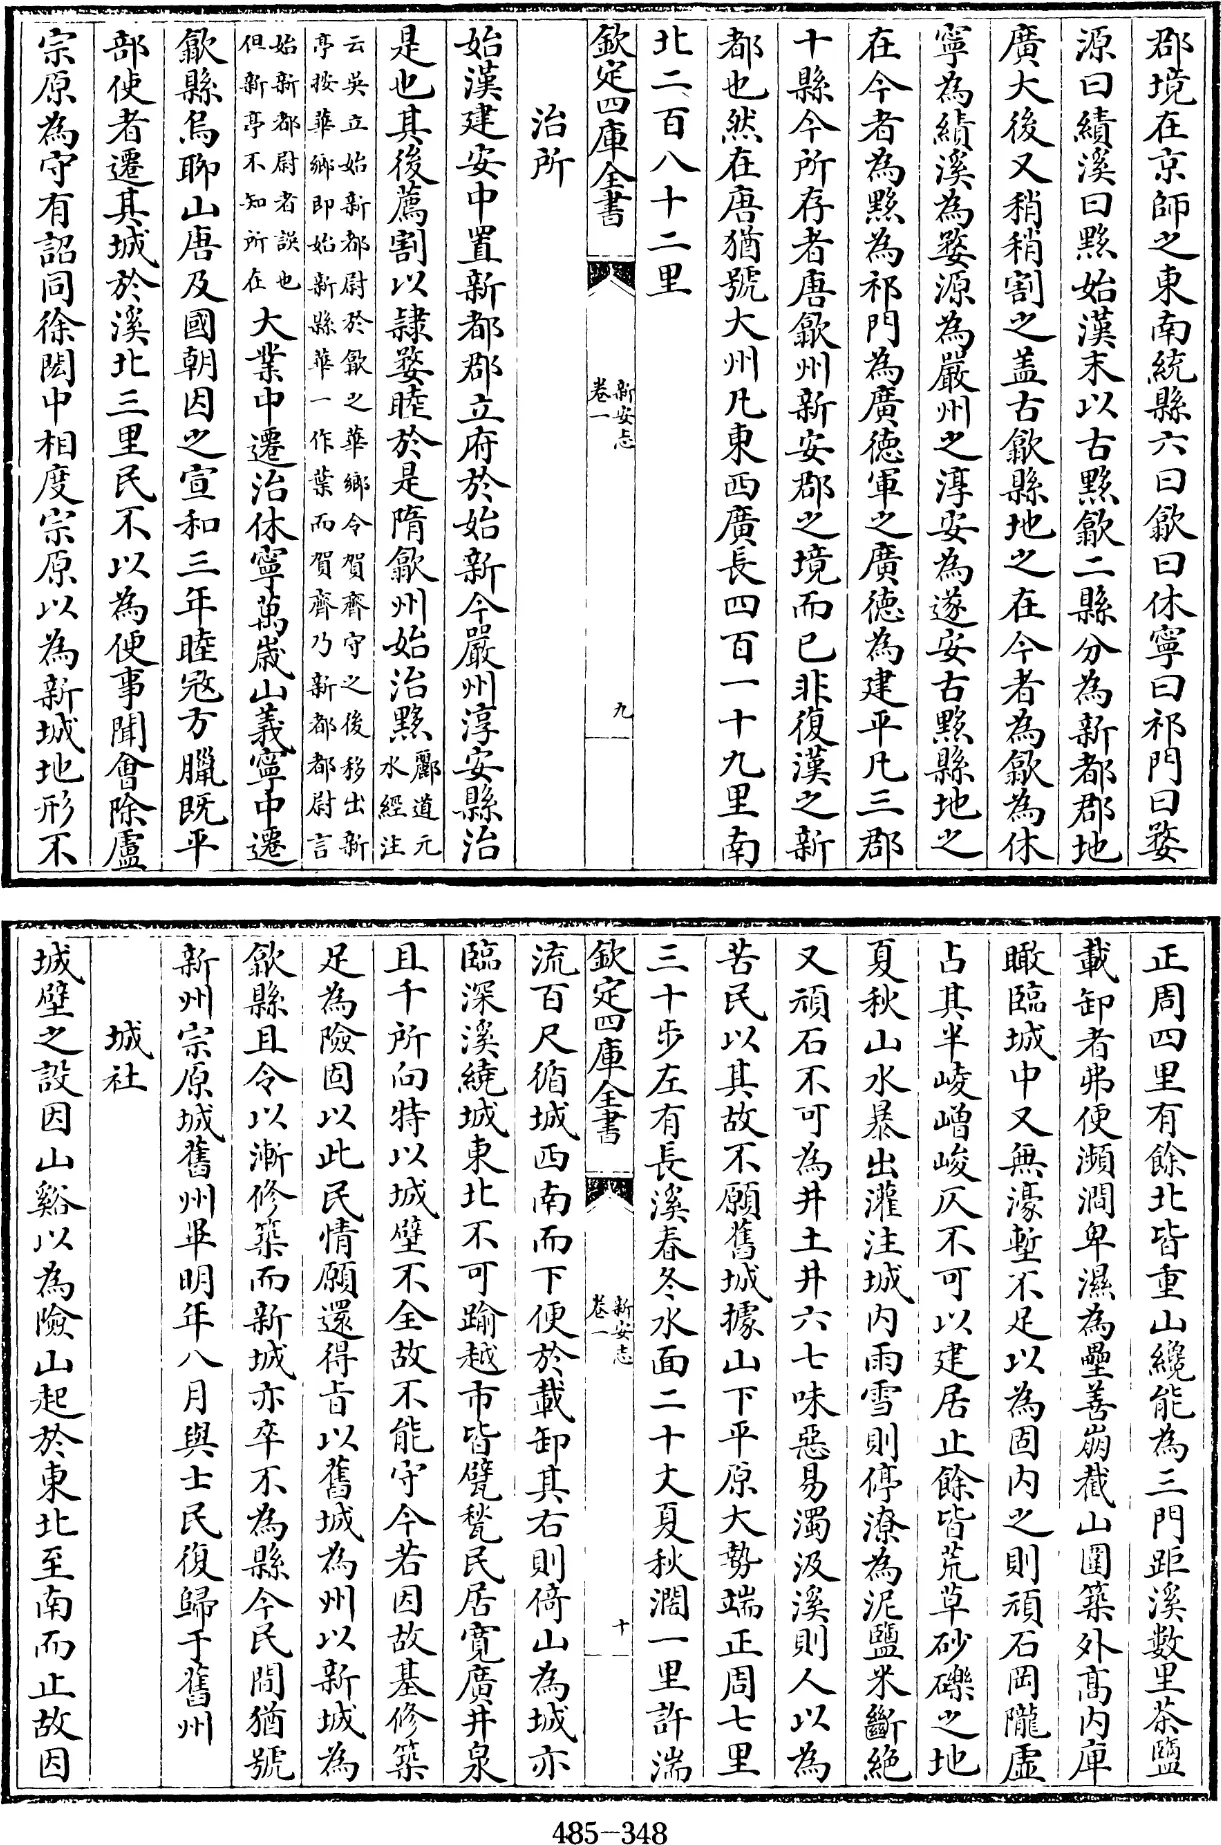 郡境在京師之東南統縣六曰歙曰休寧曰祁門曰婺
源曰績溪曰黟始漢末以古黟歙二縣分為新都郡地
廣大後又稍稍割之盖古歙縣地之在今者為歙為休
寧為績溪為婺源為嚴州之淳安為遂安古黟縣地之
在今者為黟為祁門為廣德軍之廣德為建平凡三郡
十縣今所存者唐歙州新安郡之境而已非復漢之新
都也然在唐猶號大州凡東西廣長四百一十九里南
北二百八十二里
欽定四庫全書
新安志
卷一
九
治所
始漢建安中置新都郡立府於始新今嚴州淳安縣治
是也其後薦割以隸婺睦於是隋歙州始治黟酈道元水經注
云吳立始新都尉於歙之華鄉今賀齊守之後移出新
亭按華鄉即始新縣華一作葉而賀齊乃新都都尉言
始新都尉者誤也但新亭不知所在大業中遷治休寧萬歲山義寧中遷
歙縣烏聊山唐及國朝因之宣和三年睦冦方臘既平
部使者遷其城於溪北三里民不以為便事聞會除盧
宗原為守有詔同徐閎中相度宗原以為新城地形不
正周四里有餘北皆重山纔能為三門距溪數里茶鹽
載卸者弗便瀕澗卑濕為壘善崩截山圍築外高内庫
瞰臨城中又無濠塹不足以為固内之則頑石岡隴虛
占其半崚嶒峻仄不可以建居止餘皆荒草砂礫之地
夏秋山水暴出灌注城内雨雪則停潦為泥鹽米斷絶
又頑石不可為井土井六七味惡易濁汲溪則人以為
苦民以其故不願舊城據山下平原大勢端正周七里
三十步左有長溪春冬水面二十丈夏秋濶一里許湍
欽定四庫全書
新安志
卷一
十
流百尺循城西南而下便於載卸其右則倚山為城亦
臨深溪繞城東北不可踰越市皆甓甃民居寛廣井泉
且千所向特以城壁不全故不能守今若因故基修築
足為險固以此民情願還得㫖以舊城為州以新城為
歙縣且令以漸修築而新城亦卒不為縣今民間猶號
新州宗原城舊州畢明年八月與士民復歸于舊州
城社
城壁之設因山谿以為險山起於東北至南而止故因
485-348